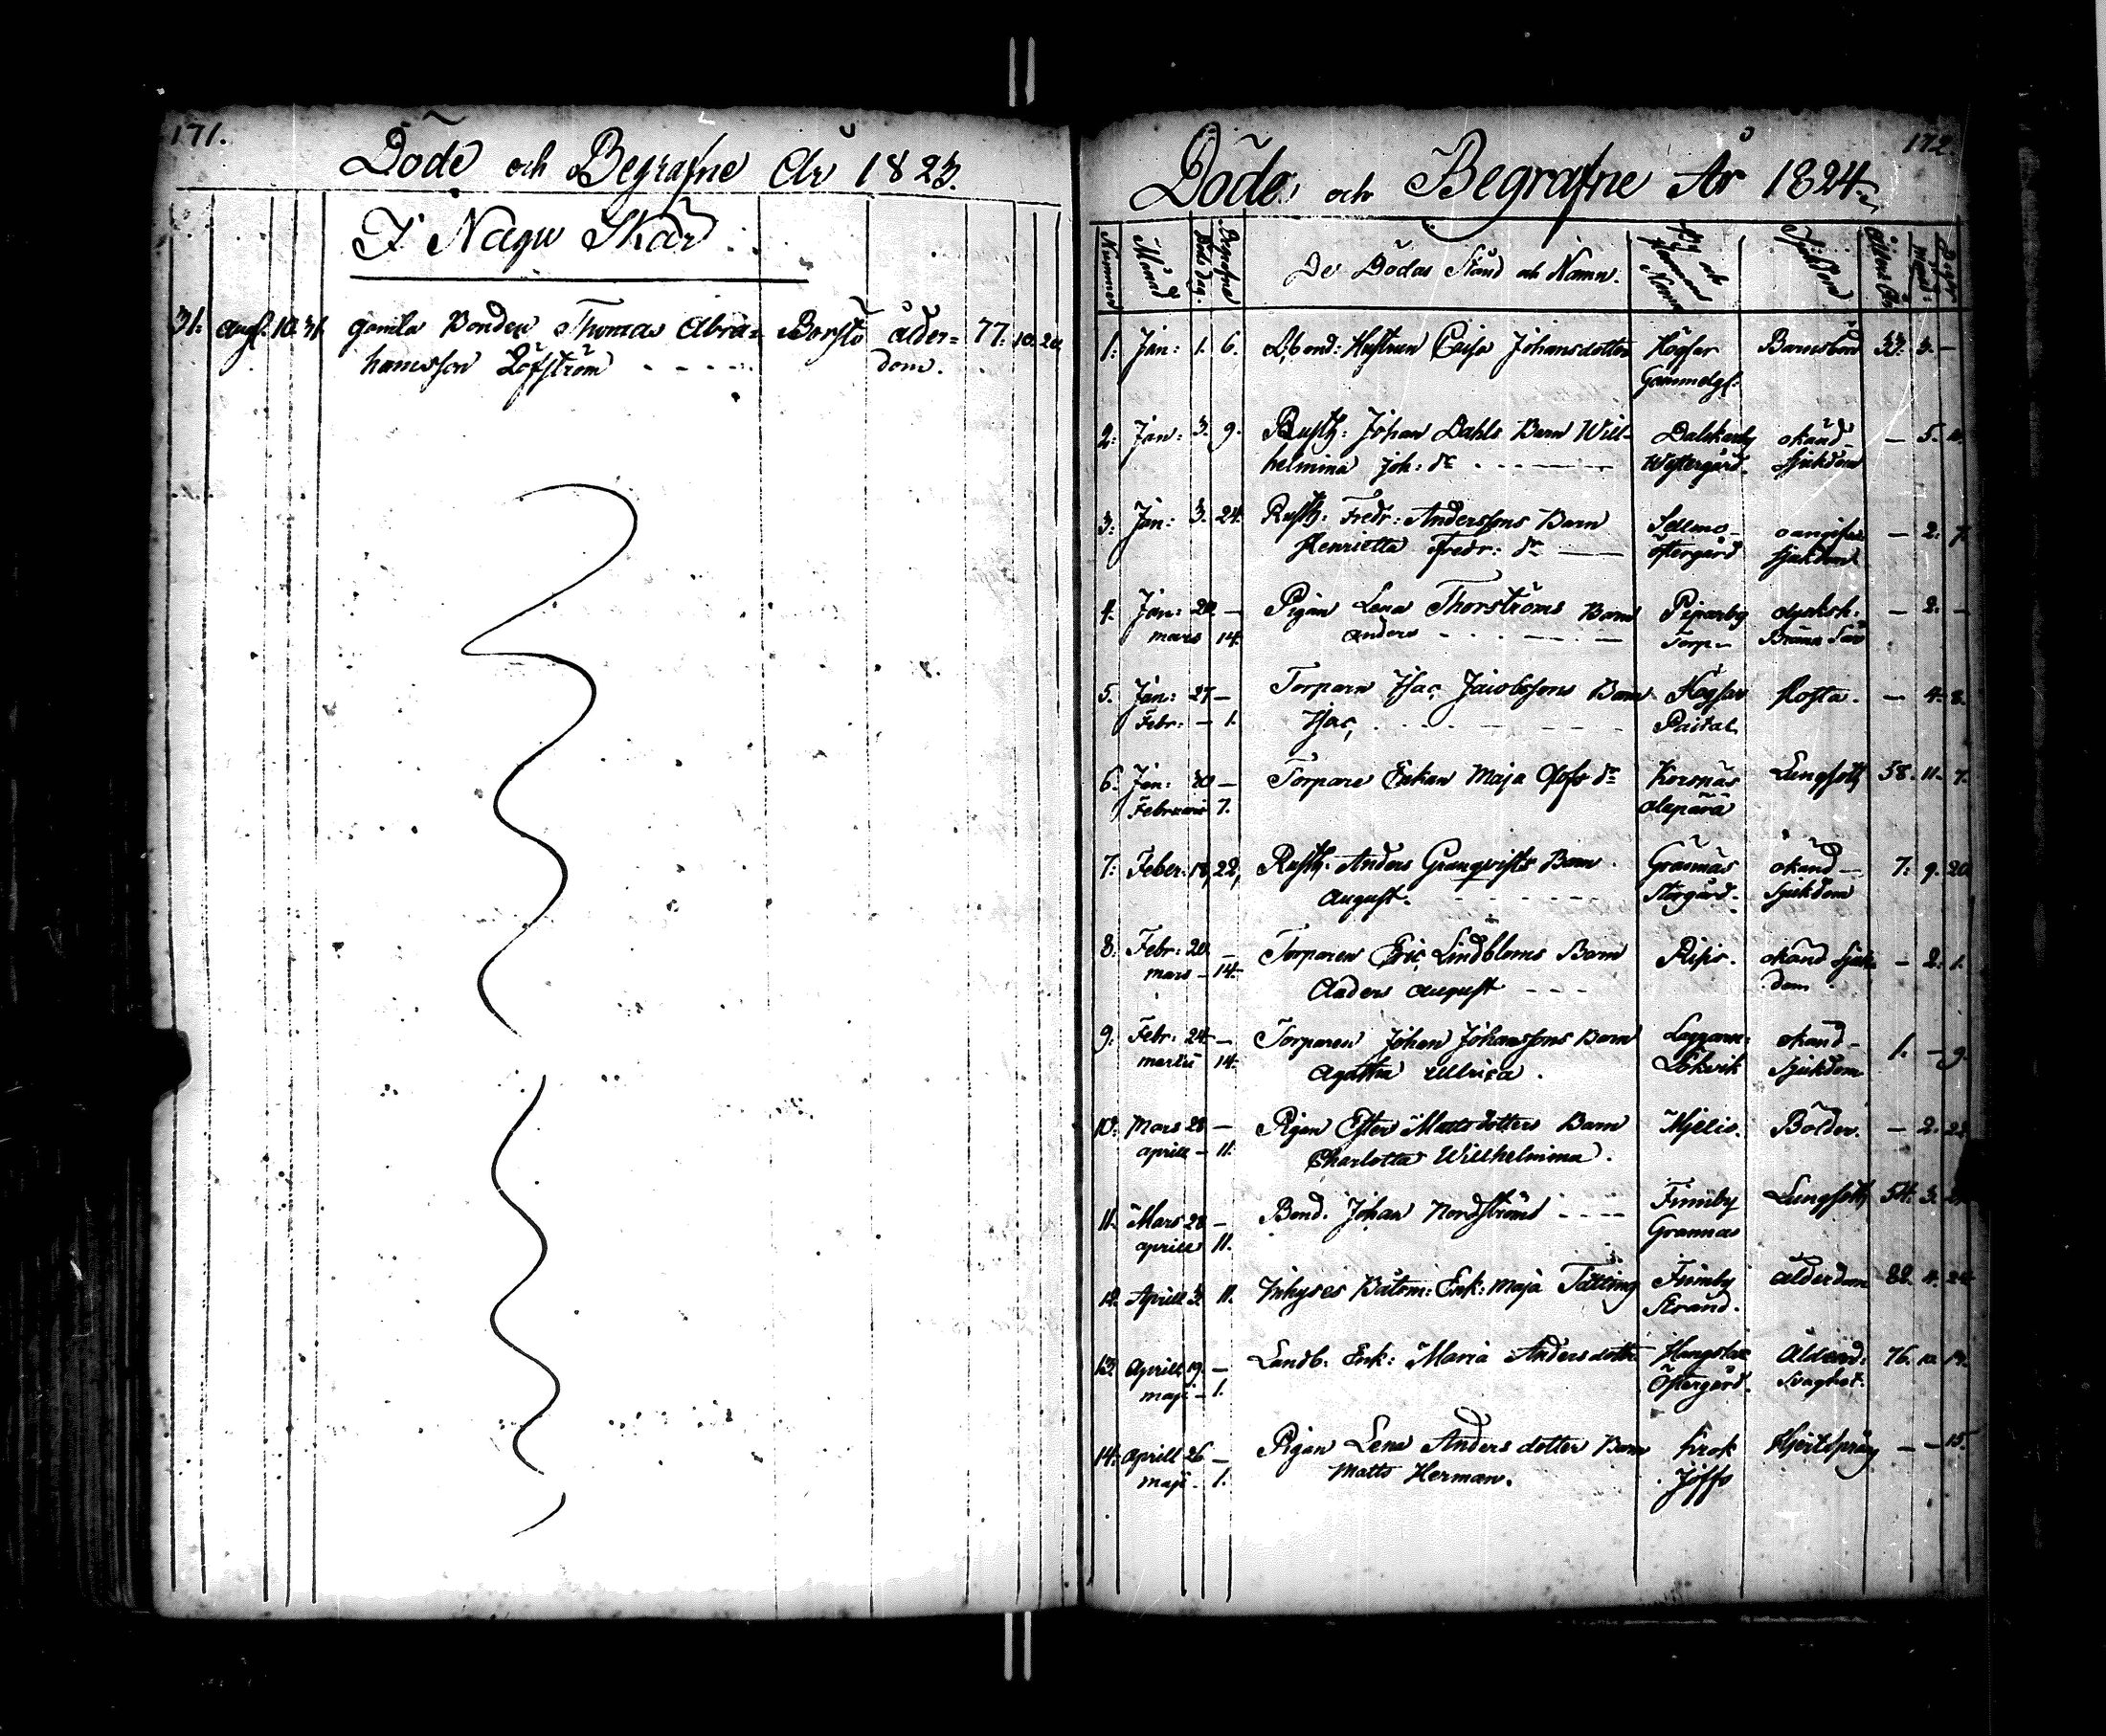 171.
Döde och Begrafne År 1823.
I Nagu Skär
31. Aug. 10. 31. gamla Bonden Thomas Abra= Borstö ålder= 77. 10. 20.
hamsson Löfström dom.
172.
Döde och Begrafne År 1824.
Nummer Månad Döds dag. Begrafne De Dödas Stånd och Namn. By och Hemmans Namn Sjukdom Ålders År Månad: Dagar
1. Jan: 1. 6. Bond: Hustrun Caisa Johansdotter Högsar Barnsbörd 33. 3. —
Gammelg:
2. Jan: 3. 9. Rusth: Johan Dahls Barn Will- Dalskarby okänd — 5.
helmina Joh: dr Westergård sjukdom
3. Jan: 3. 24. Rusth: Fredr: Anderssons Barn Sellmo — 2. 7.
Henrietta Fredr: dr östergård sjukdom
4. Jan: 20 — Pigan Lena Thorströms Barn Piparby — 2. —
mars 14. Anders Torp
5. Jan: 27 — Torparn Isac Jacobssons Barn Högsar Hosta. — 4. 8.
Febr: — 1. Isac
6. Jan: 30 — Torpare Enkan Maja Olofs dr Korsnäs Lungsott 58. 11. 7.
Februarii 7.
7. Feber: 18, 22, Rusth: Anders Granqvists Barn Grannäs okänd — 7. 9. 20
August. Storgård. Sjukdom
8. Febr: 20. — Torparen Eric Lindbloms Barn Risis. okänd Sjuk- — 2. 1.
mars — 14. Anders August dom
9. Febr: 24 — Torparen Johan Johanssons Barn okänd — 1. — 9.
martii 14. Agatha Ullrica. Lökvik Sjukdom
10. Mars 28 — Pigan Ester Mattsdotters Barn Mjelis. Bölder. — 2. 22.
aprill — 11. Charlotta Willhelmina.
11. Mars 28 — Bond. Johan Nordströms Finnby Lungsott 54. 3.
aprill 11. Grannas
12. Aprill 3. 11. Inhyses Båtsm: Enk: Maja Tätting Finnby ålderdom 88. 4. 24
Strand.
13. Aprill 19. — Landb: Enk: Maria Andersdotter Ålderd: 76. 10. 19.
maji — 1. Östergård. Svaghet.
14. Aprill 26 — Pigan Lena Andersdotter Barn Krok Hjertsprång — — 15.
maji — 1. Matts Herman. Joffs